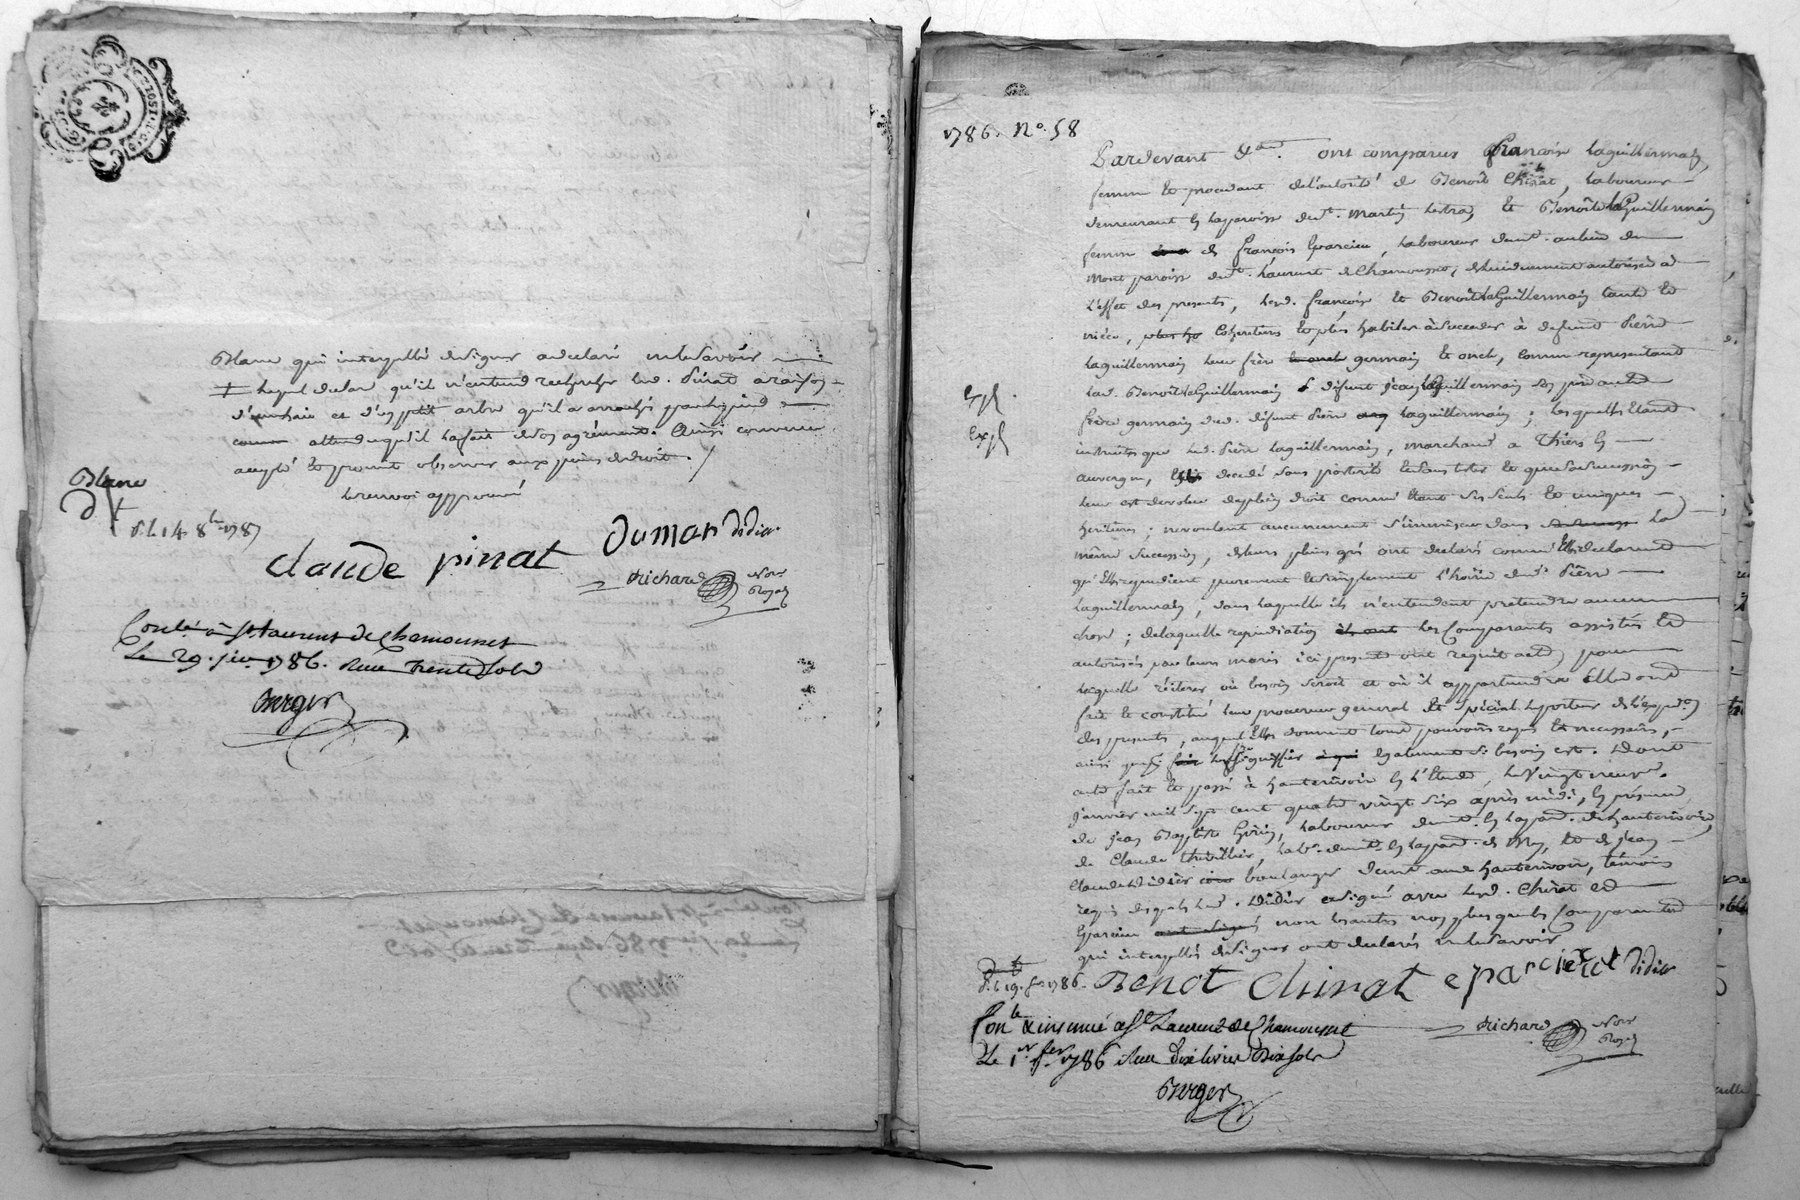 Blanc qui interpellé de signer a déclaré ne le savoir
lequel declare qu'il n'entend rechercher led. Pinat a raison
d'une haie et d'un petit arbre qu'il a arraché
attendu qu'il l'a fait de son agrément. Ainsi convenu
accepté et promit observer aux peines de droit.
le renvoi approuvé
Blanc
d
d. l. 14 8bre 1787
claude pinat
dumas didier
Richard Nore
Royal
Conlé à St Laurent de Chamousset
Le 29. jer 1786. Reçu trente sols
Berger
1786. No. 58
Pardevant &a. ont comparus françoise laguillermain,
femme et procedant de l'autorité de Benoit Chirat, laboureur
demeurant en la paroisse de St. Martin lestra, et Benoîte laGuillermain
femme de françois Eparcieu, laboureur demt. au lieu du
Mont paroisse de St. Laurent de Chamousset, de lui duement autorisée à
l'effet des presentes, lesd. françoise et Benoîte laGuillermain tante et
niéce, cohéritieres et plus habiles à succeder à defunt Pierre
laguillermain leur frère germain et oncle, comme representant
lad. Benoîte laGuillermain defunt jean laguillermain son père autre
frère germain dud. defunt Pierre laguillermain ; lesquelles étant
instruites que led. Pierre laguillermain, marchand a Thiers en
auvergne, est decedé sans postérité et sans tester et que sa succession
leur est devolue de plein droit comme étant ses seuls et uniques
heritieres ; ne voulant aucunement s'immiscer dans la
même succession, de leurs plein gré ont declaré comme Elles declarent
qu'Elles repudient purement et simplement l'hoirie dud. Pierre
laguillermain, dans laquelle ils n'entendent pretendre aucune
chose ; de laquelle repudiation les Comparantes assistés et
autorisés par leurs maris ici presents ont requis acte, pour
laquelle réiterer où besoin seroit et où il appartiendra Elles ont
fait et constitué leur procureur general et spécial le porteur de l'expedon.
des presentes, auquel Elles donnent tout pouvoirs requis et necessaires,
ainsi que de faire signifier legalement si besoin est. Dont
acte fait et passé à hauterivoire en l'Etude, le vingt neuf
janvier mil sept cent quatre vingt six après midi, en présence
de jean Baptiste Gorin, laboureur demt. en la par. de hauterivoire,
de Claude thivillier, labr. demt. en la par. de Mey, et de jean
Claude Didier boulanger demt. aud. hauterivoire, témoins
requis desquels led. Didier a signé avec lesd. Chirat et
Eparcieu non les autres temoins ni lesquels Comparantes
qui interpellés de signer ont declarés ne le savoir
Expé.
Expé.
d. l. 19. fer 1786.
Benoit Chirat eparcieu didier
Richard Nore
Royal
Conlé & insinué à St Laurent de Chamousset
Le 1er fer 1786 Reçu dix livres dix sols
Berger